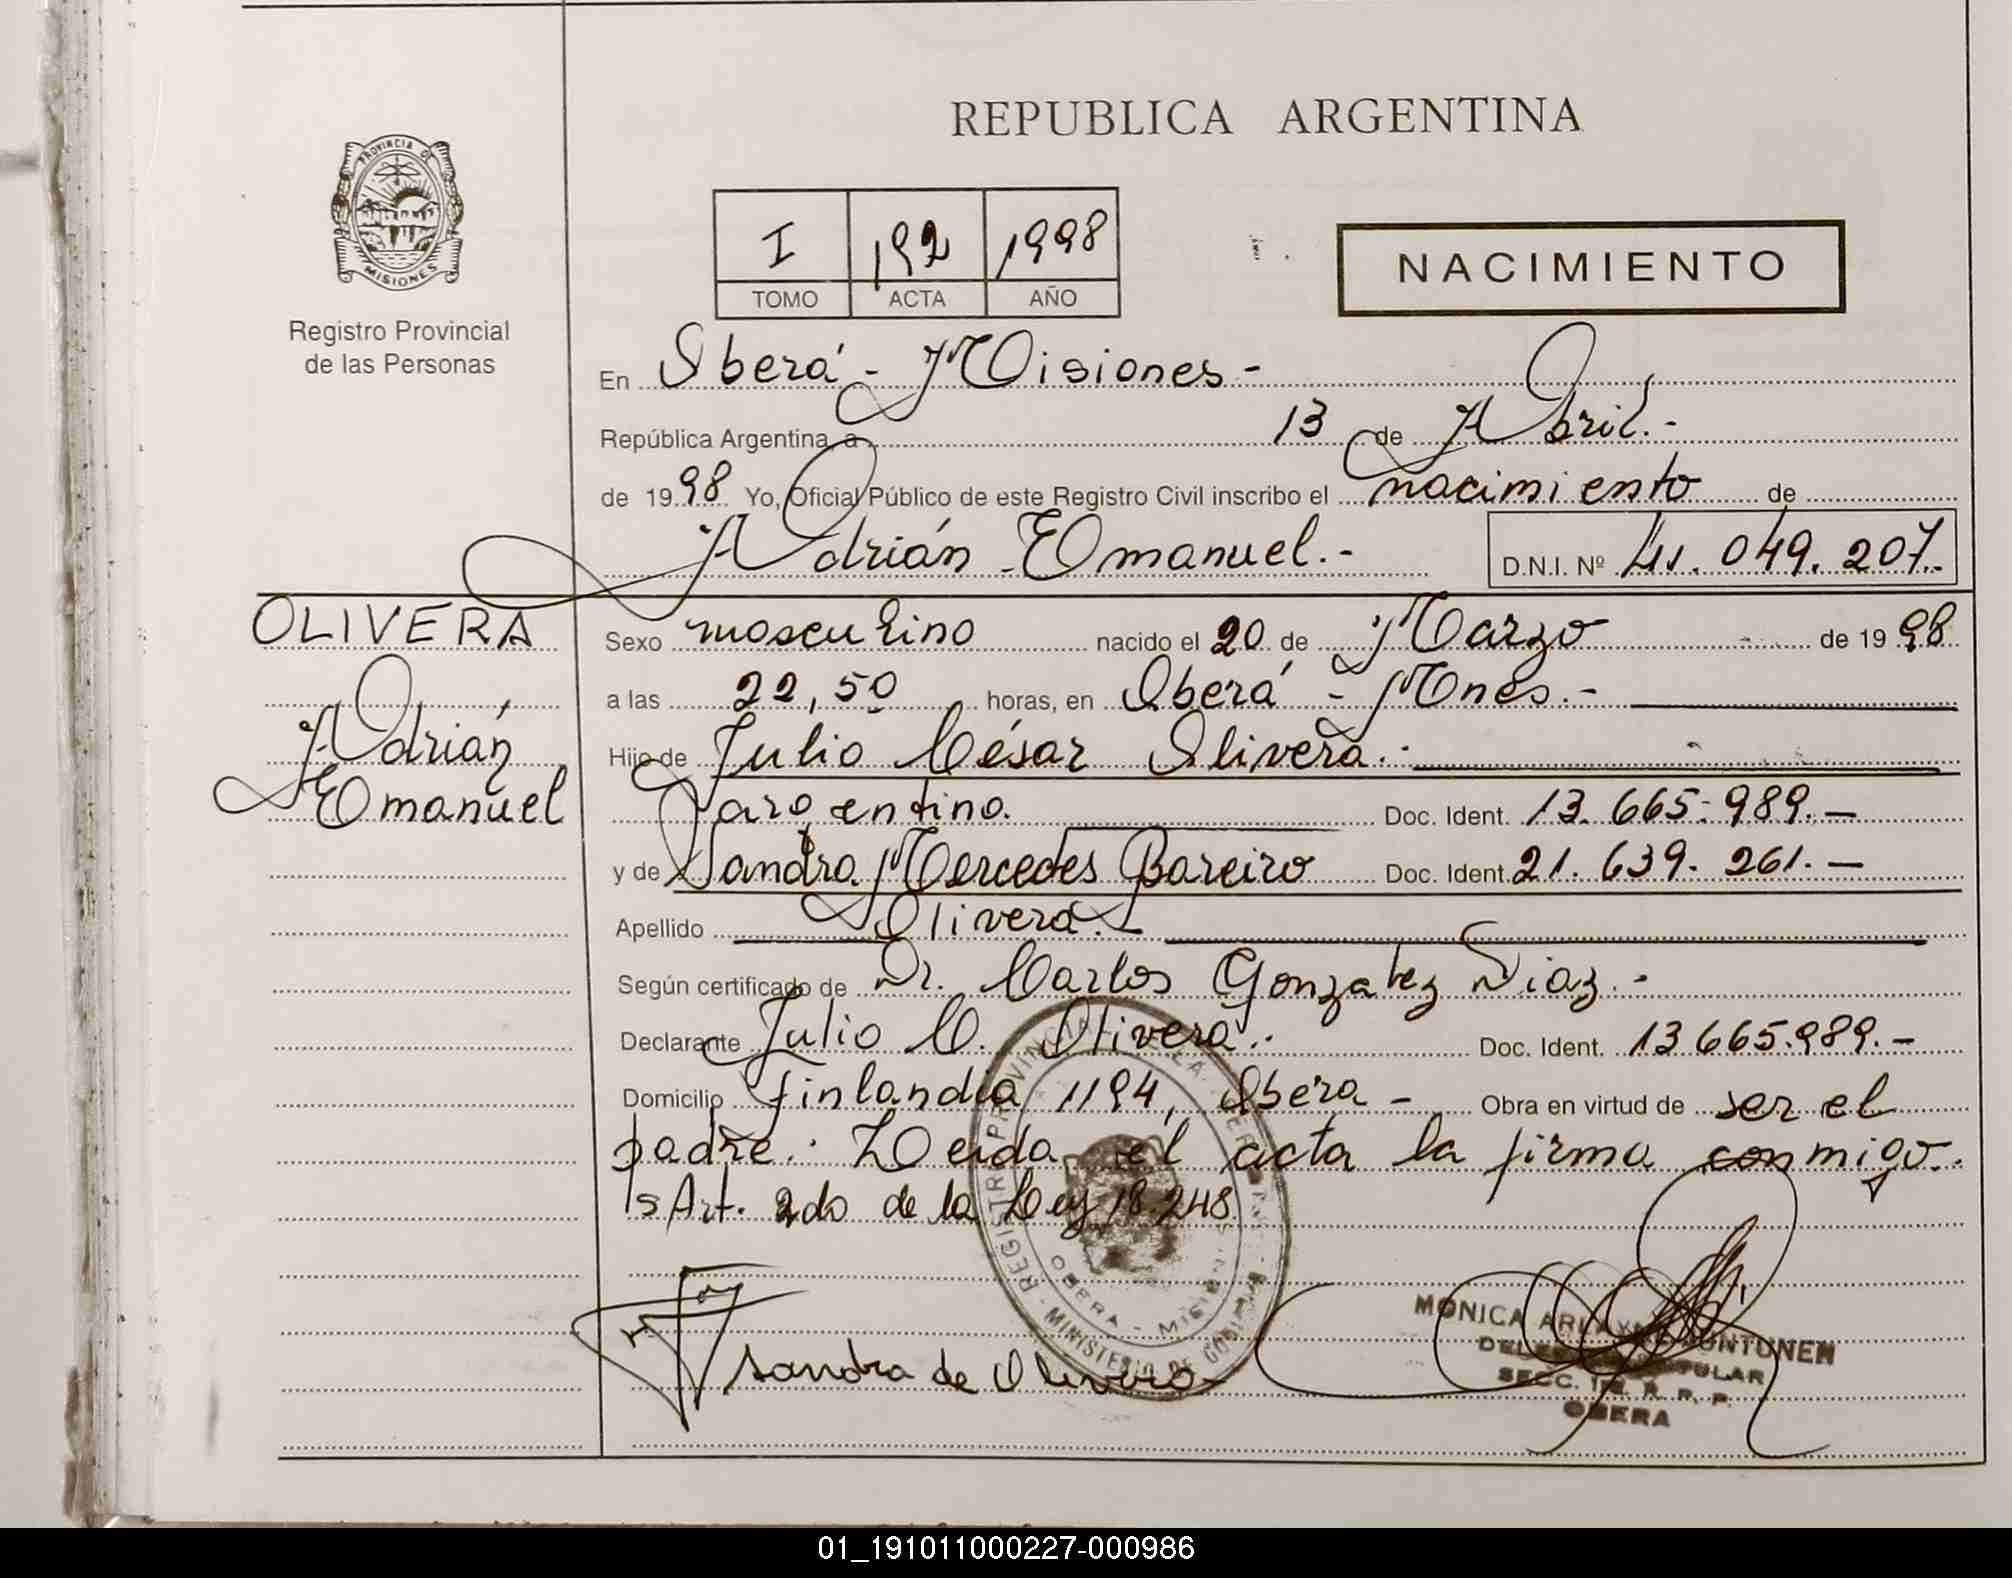 REPUBLICA ARGENTINA
PROVINCIA DE
MISIONES
Registro Provincial
de las Personas
I 192 1998
TOMO ACTA AÑO
NACIMIENTO
En Oberá - Misiones -
República Argentina, a 13 de Abril.-
de 1998 Yo, Oficial Público de este Registro Civil inscribo el nacimiento de
Adrián Emanuel.- D.N.I. Nº 41.049.207.-
OLIVERA
Adrián
Emanuel
Sexo masculino nacido el 20 de Marzo de 1998
a las 22,50 horas, en Oberá - Mnes.-
Hijo de Julio César Olivera.-
argentino. Doc. Ident. 13.665.989.-
y de Sandra Mercedes Bareiro Doc. Ident. 21.639.261.-
Apellido Olivera.-
Según certificado de Dr. Carlos Gonzalez Diaz.-
Declarante Julio C. Olivera.- Doc. Ident. 13.665.989.-
Domicilio Finlandia 1194, Oberá - Obra en virtud de ser el
padre.- Leida el acta la firma conmigo.
Art. 2do de la Ley 18.248
Sandra de Olivera
REGISTRO PROVINCIAL DE LAS PERSONAS
OBERA - MISIONES
MINISTERIO DE GOBIERNO
MONICA
TITULAR
SECC. 1ª R. R. P.
OBERA
01_191011000227-000986